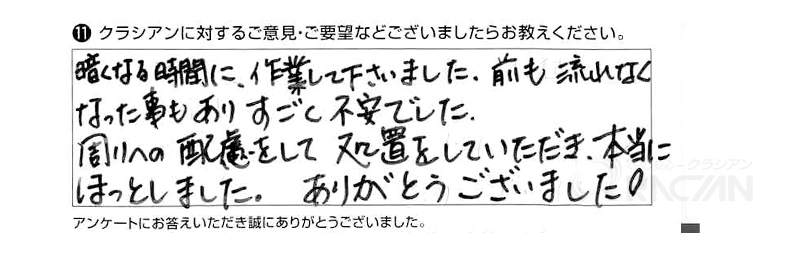 ⓫ クラシアンに対するご意見・ご要望などございましたらお教えください。
暗くなる時間に、作業して下さいました。前も流れなく
なった事もありすごく不安でした。
周りへの配慮をして処置をしていただき、本当に
ほっとしました。ありがとうございました!
クラシアン
RACIAN
アンケートにお答えいただき誠にありがとうございました。